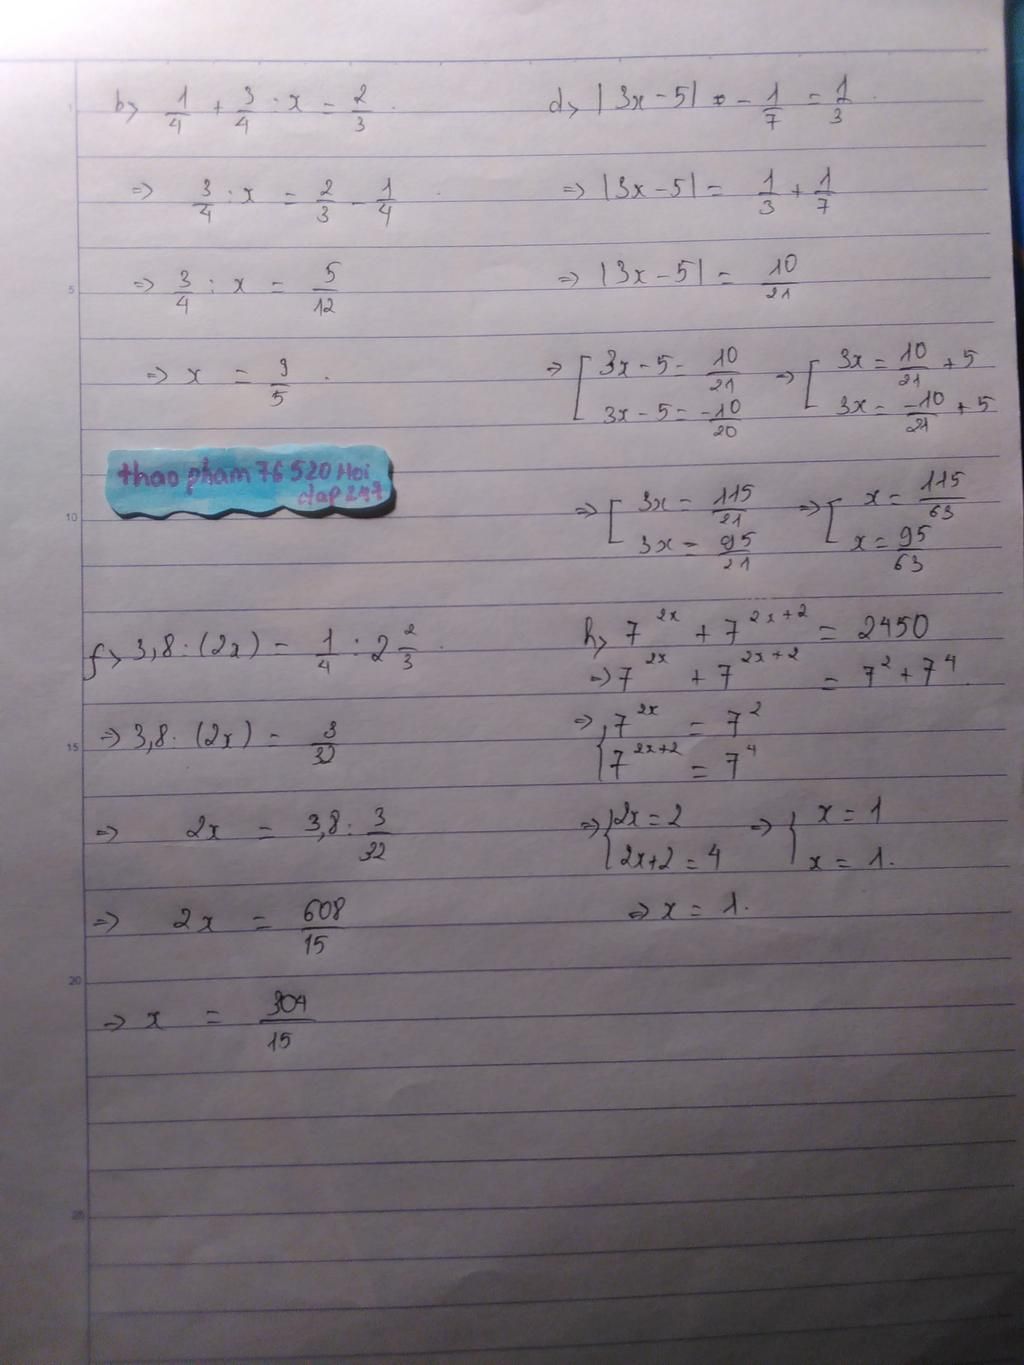 b> 1/4 + 3/4 : x = 2/3.
=> 3/4 : x = 2/3 - 1/4
=> 3/4 : x = 5/12
=> x = 9/5.
thao phạm 76 520 Hoi
dap 247
d> |3x - 5| - 1/7 = 1/3.
=> |3x - 5| = 1/3 + 1/7
=> |3x - 5| = 10/21
=> [ 3x - 5 = 10/21 => [ 3x = 10/21 + 5
3x - 5 = -10/20 3x = -10/21 + 5
=> [ 3x = 115/21 => [ x = 115/63
3x = 95/21 x = 95/63
f> 3,8 : (2x) = 1/4 : 2 2/3.
=> 3,8 : (2x) = 3/32
=> 2x = 3,8 : 3/32
=> 2x = 608/15
=> x = 304/15
h, 7^2x + 7^2x+2 = 2450
=> 7^2x + 7^2x+2 = 7^2 + 7^4.
=> { 7^2x = 7^2
7^2x+2 = 7^4
=> { 2x = 2 => { x = 1
2x+2 = 4 x = 1.
=> x = 1.
1
5
10
15
20
25